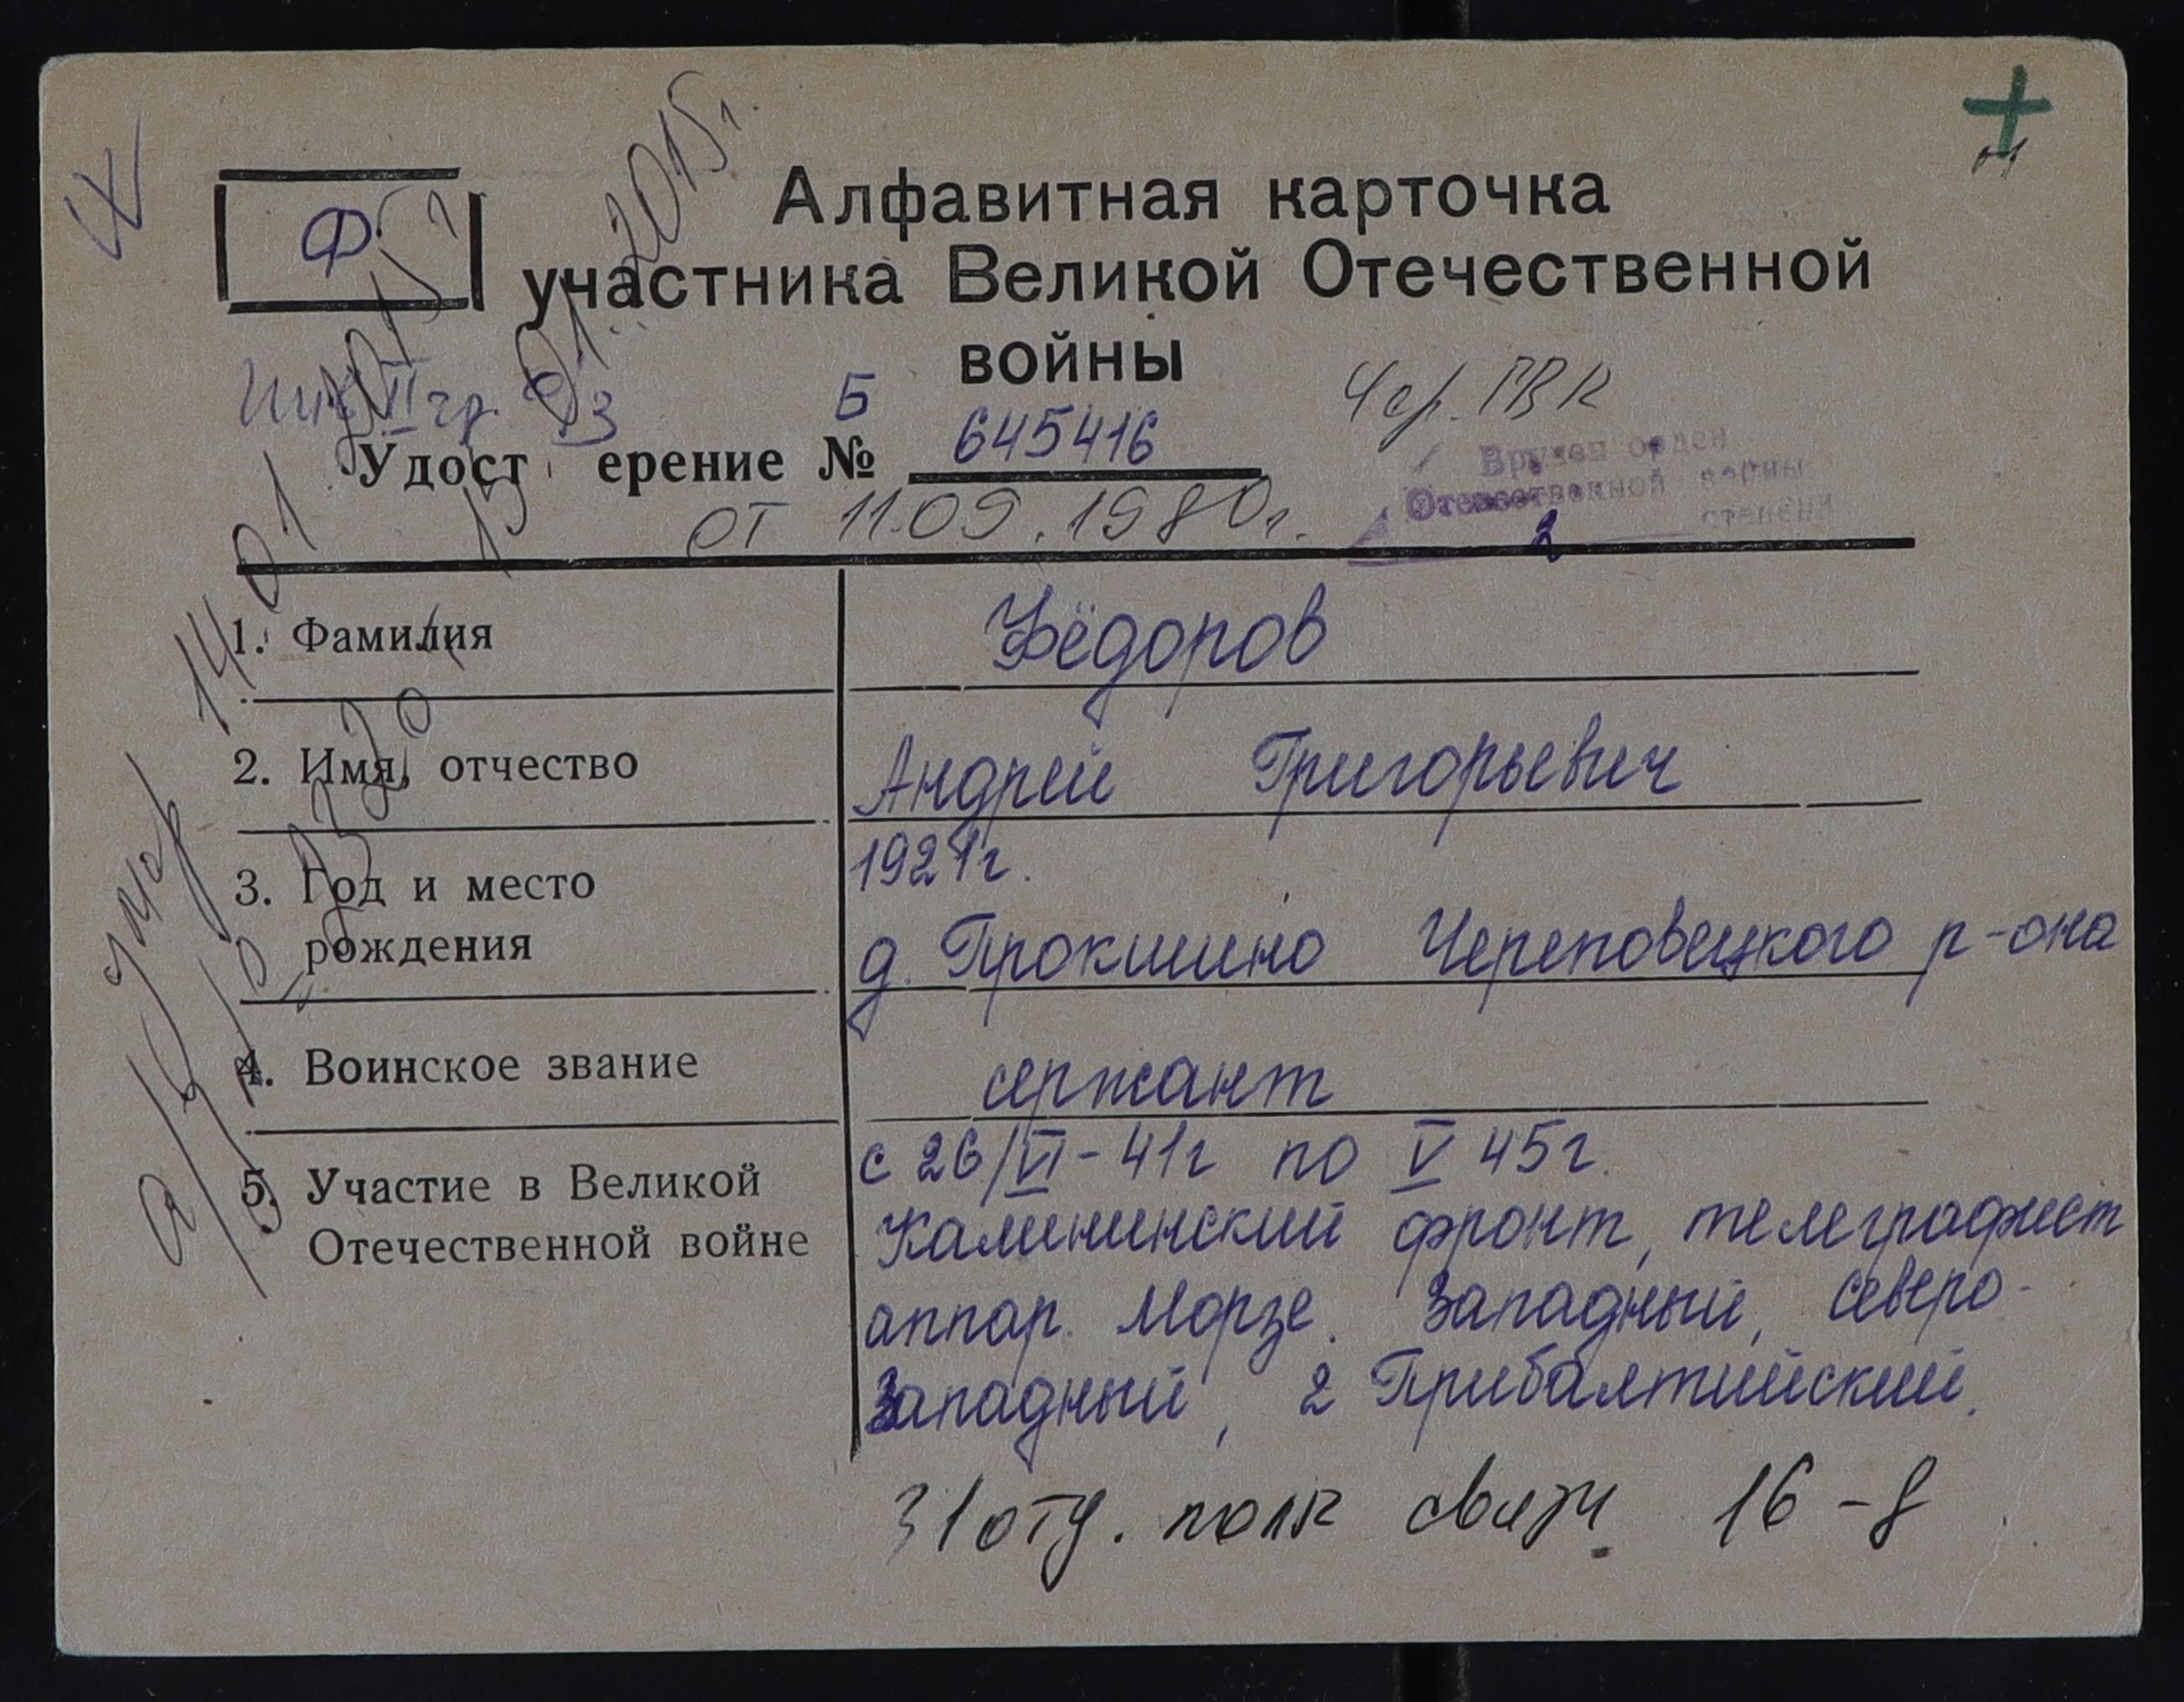 Ф
Алфавитная карточка
участника Великой Отечественной
войны
Инв. II гр.
Чер. ГВК
Б
Удост ерение № 645416
от 11.09.1980г.
Вручен орден
Отечественной войны
2 степени
01.2015г.
умер 14 01
1. Фамилия Фёдоров
2. Имя, отчество Андрей Григорьевич
3. Год и место 1921г.
рождения д. Прокшино Череповецкого р-она
4. Воинское звание сержант
5. Участие в Великой с 26/VI-41г по V 45г.
Отечественной войне Калининский фронт, телеграфист
аппар. Морзе. Западный, северо-
западный, 2 Прибалтийский.
31 отд. полк связи 16-й